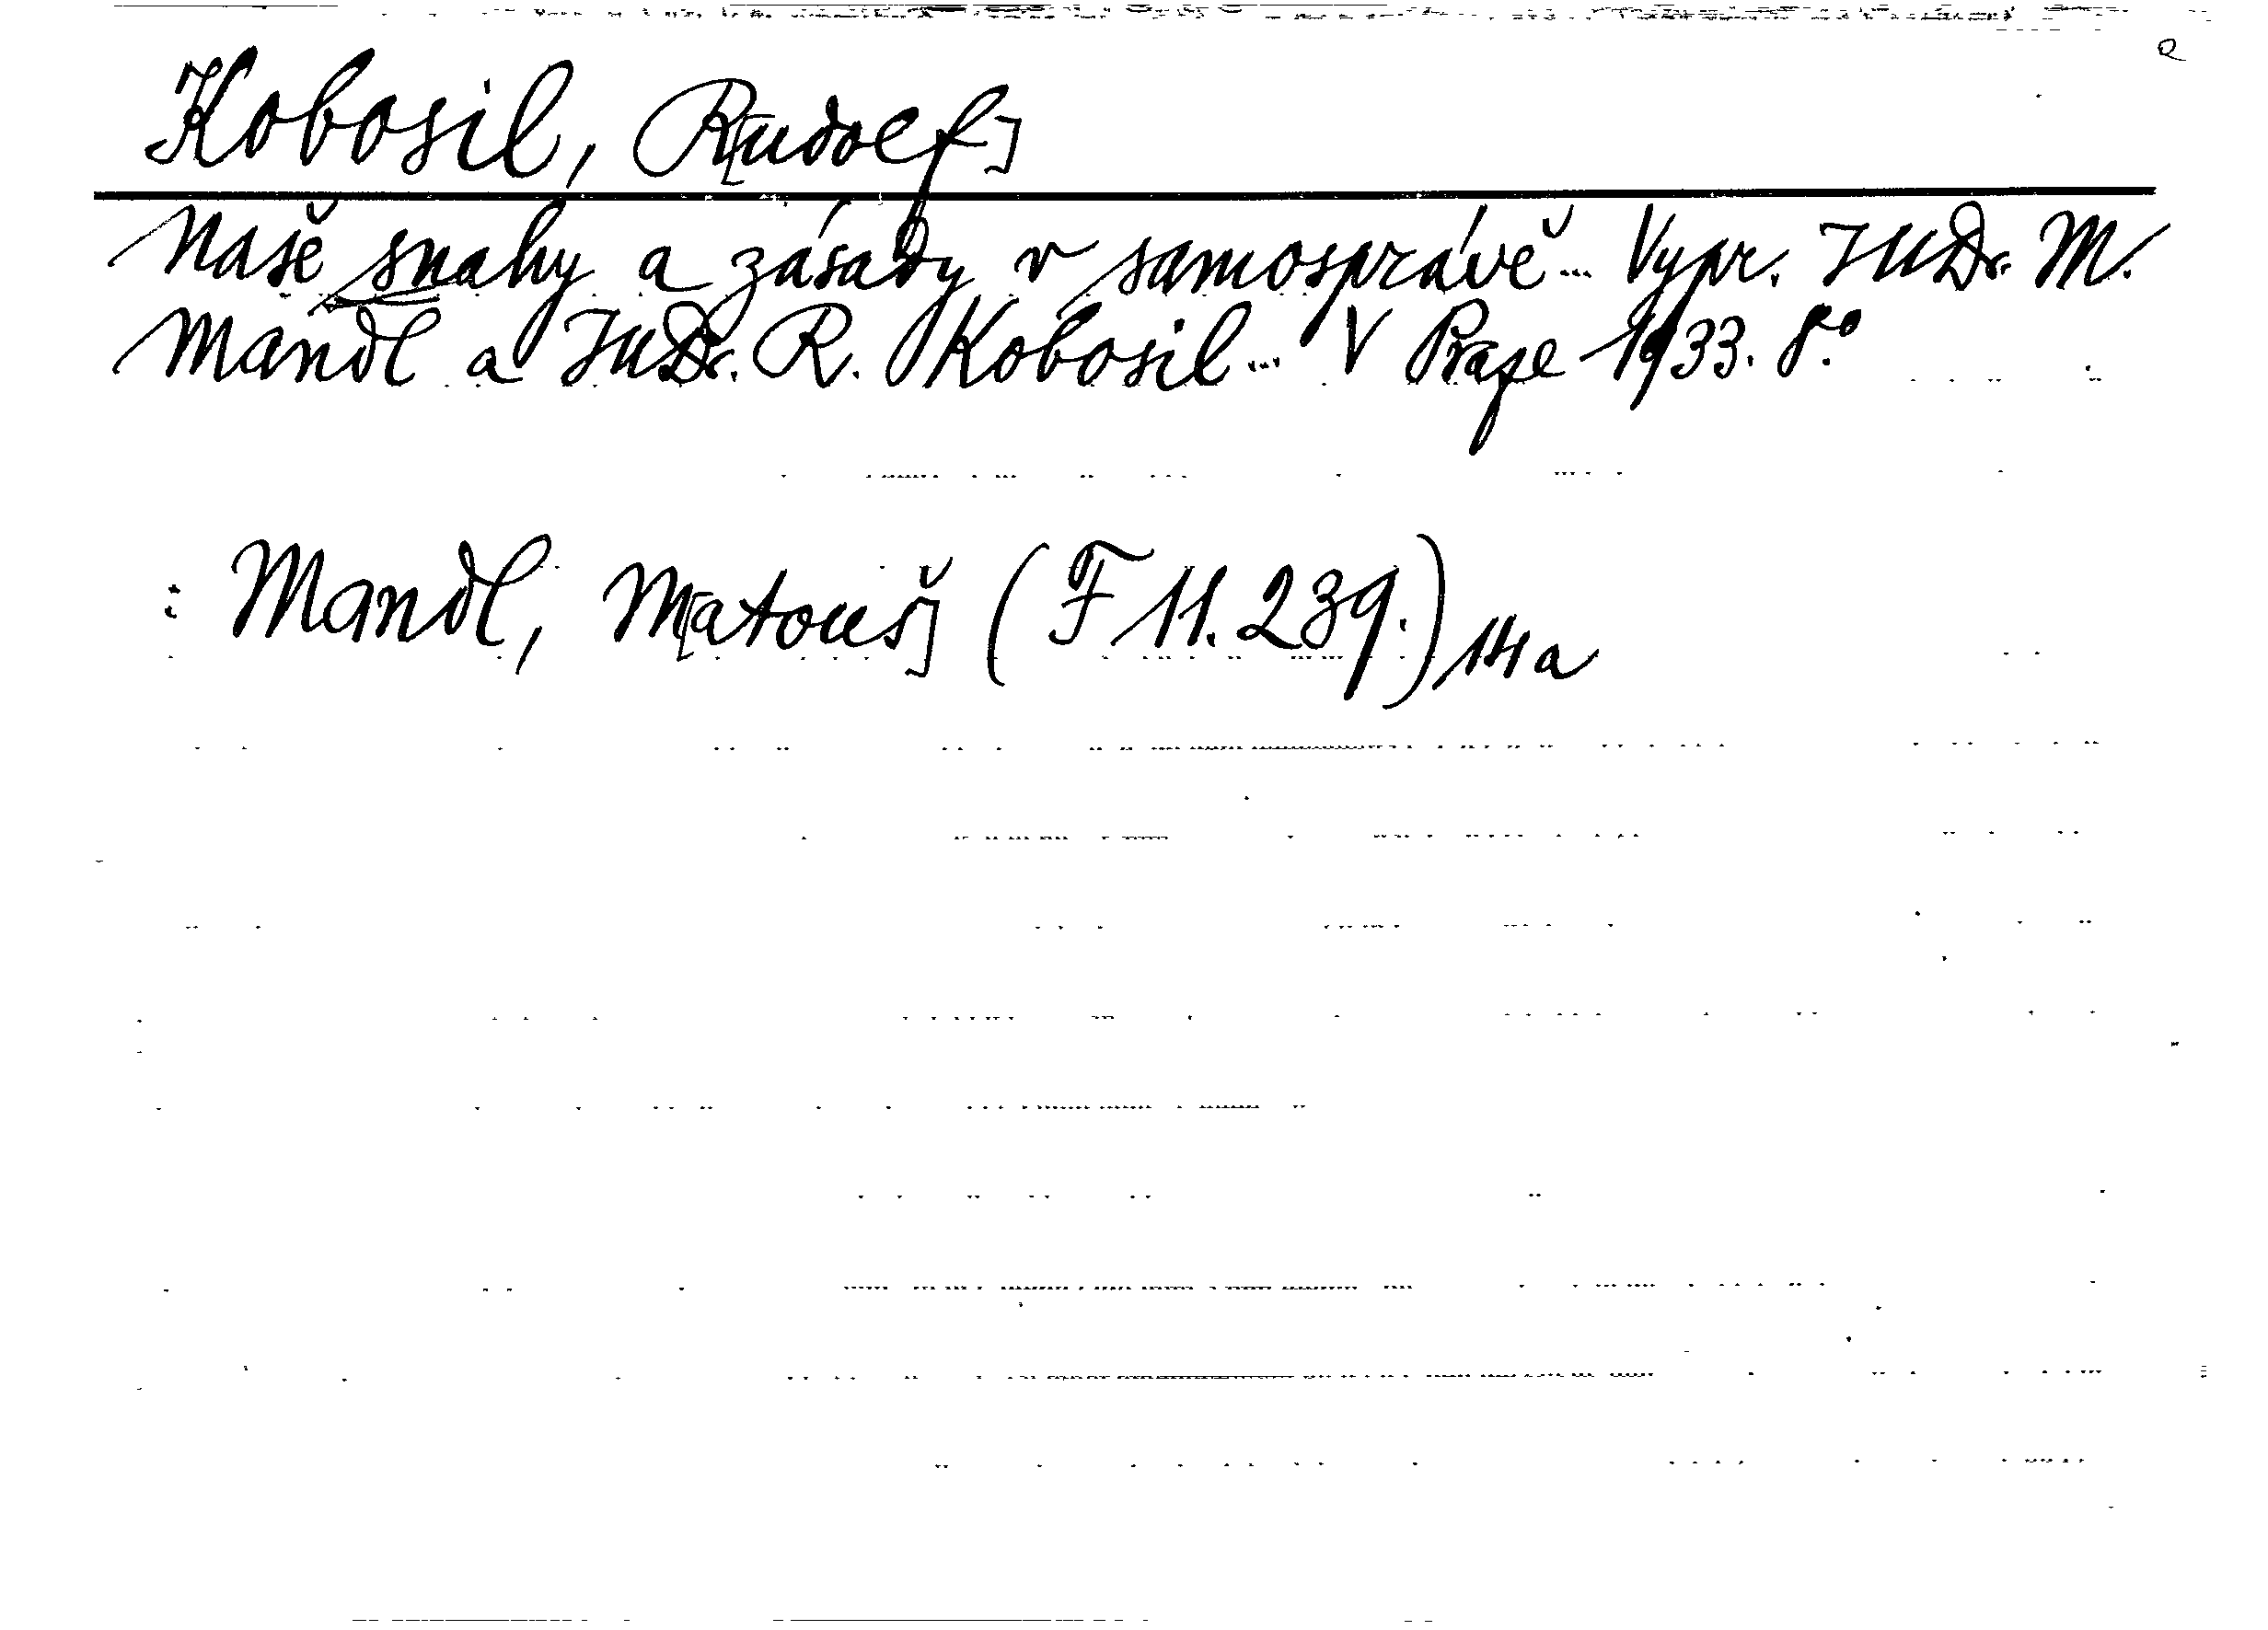 Kobosil, R[udolf]
Naše snahy a zásady v samosprávě... Vypr. JUDr. M.
Mandl a JUDr. R. Kobosil... V Praze 1933. 8.°
: Mandl, M[atouš] (F 11.239.) 14a